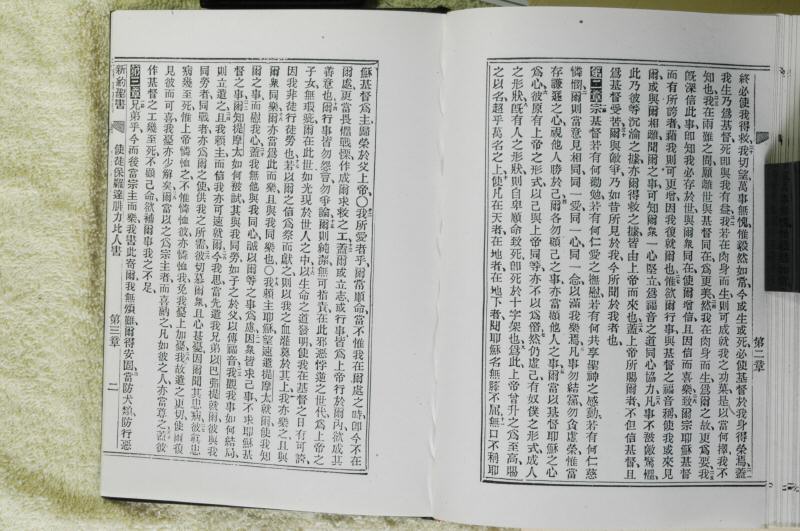 第二章
終必使我得救、我切望萬事無愧、惟毅然如常、今或生或死、必使基督於我身得榮焉、蓋
我生乃爲基督、死卽與我有益、我若在肉身而生、則可成就我之功果、是以當何擇、我不
知也、我在兩難之間、願離世與基督同在、爲更美、然我在肉身而生、爲爾之故更爲要、我
旣深信此事、卽知我必存於世、與爾衆同在、使爾增信、且因信而喜樂、致爾宗耶穌基督
而有所誇者、藉我則可更增、因我復就爾也、惟爾行事、與基督之福音稱、使我或來見
爾、或與爾相離、聞爾之事、可知爾衆一心堅立、爲福音之道、同心協力、凡事不被敵驚懼、
此乃彼等沉淪之據、亦爾得救之據、皆由上帝而來也、蓋上帝所賜爾者、不但信基督、且
爲基督受苦、爾與敵爭、乃如昔所見於我、今所聞於我者也、
第二章 宗基督若有何勸勉、若有何仁愛之撫慰、若有何共享聖神之感動、若有何仁慈
憐憫、爾則當意見相同、同一愛、同一心、同一念、以滿我樂焉、凡事勿結黨、勿貪虛榮、惟當
存謙遜之心、視他人勝於己、爾各勿顧己之事、亦當顧他人之事、爾當以基督耶穌之心
爲心、彼原有上帝之形式、以己與上帝同等、亦不以爲僭、然仍虛己、有奴僕之形式、成人
之形狀、旣有人之形狀、則自卑、順命致死、卽死於十字架也、爲此、上帝曾升之爲至高、賜
之以名、超乎萬名之上、使凡在天者、在地者、在地下者、聞耶穌名、無膝不屈、無口不稱耶
穌基督爲主、歸榮於父上帝、〇我所愛者乎、爾當順命、不當惟我在爾處之時、卽今不在
爾處、更當畏懼戰慄、作成爾求救之工、蓋爾或立志或行事、皆爲上帝行於爾內、欲成其
善意也、爾行事皆勿怨讟、勿爭論、爾則純潔、無可指責、在此邪惡悖逆之世代、爲上帝之
子女、無瑕疵、爾在此世如光、現於世人之中、以生命之道發明、使我在基督之日有可誇、
因我非徒行徒勞也、若以爾之信爲祭而獻之、則以我之血灌奠於其上、我亦樂之、且與
爾衆同樂、爾亦當爲此而樂、且與我同樂也、〇我賴主耶穌望速遣提摩太就爾、使我知
爾之事而慰我心、蓋我無他與我同心、誠以爾等之事爲慮、因衆皆求己事、不求耶穌基
督之事、爾知提摩太如何被試、其與我同勞、如子之於父、以傳福音、我觀我事如何結局、
則立遣之、且我賴主而信我亦可速就爾、今我思當先遣我兄弟以巴弗提就爾、彼與我
同勞者、同戰者、亦爲爾之使、供我之所需、彼切慕爾衆、且心甚憂、因爾聞其患病、彼誠患
病幾至死、惟上帝憐恤之、不惟憐恤彼、亦憐恤我、免我憂上加憂、我故遣之更切、使爾復
見彼而可喜、我憂亦少解矣、爾當以之爲宗主者、而喜納之、凡如彼之人、亦當尊之、蓋彼
作基督之工、幾至死、不顧己命、欲補爾事我之不足、
第三章 兄弟乎、今而後當宗主而樂、我書此寄爾、我無煩難、爾得安固、當防犬類、防行惡
新約聖書 使徒保羅達腓力比人書 第三章 二